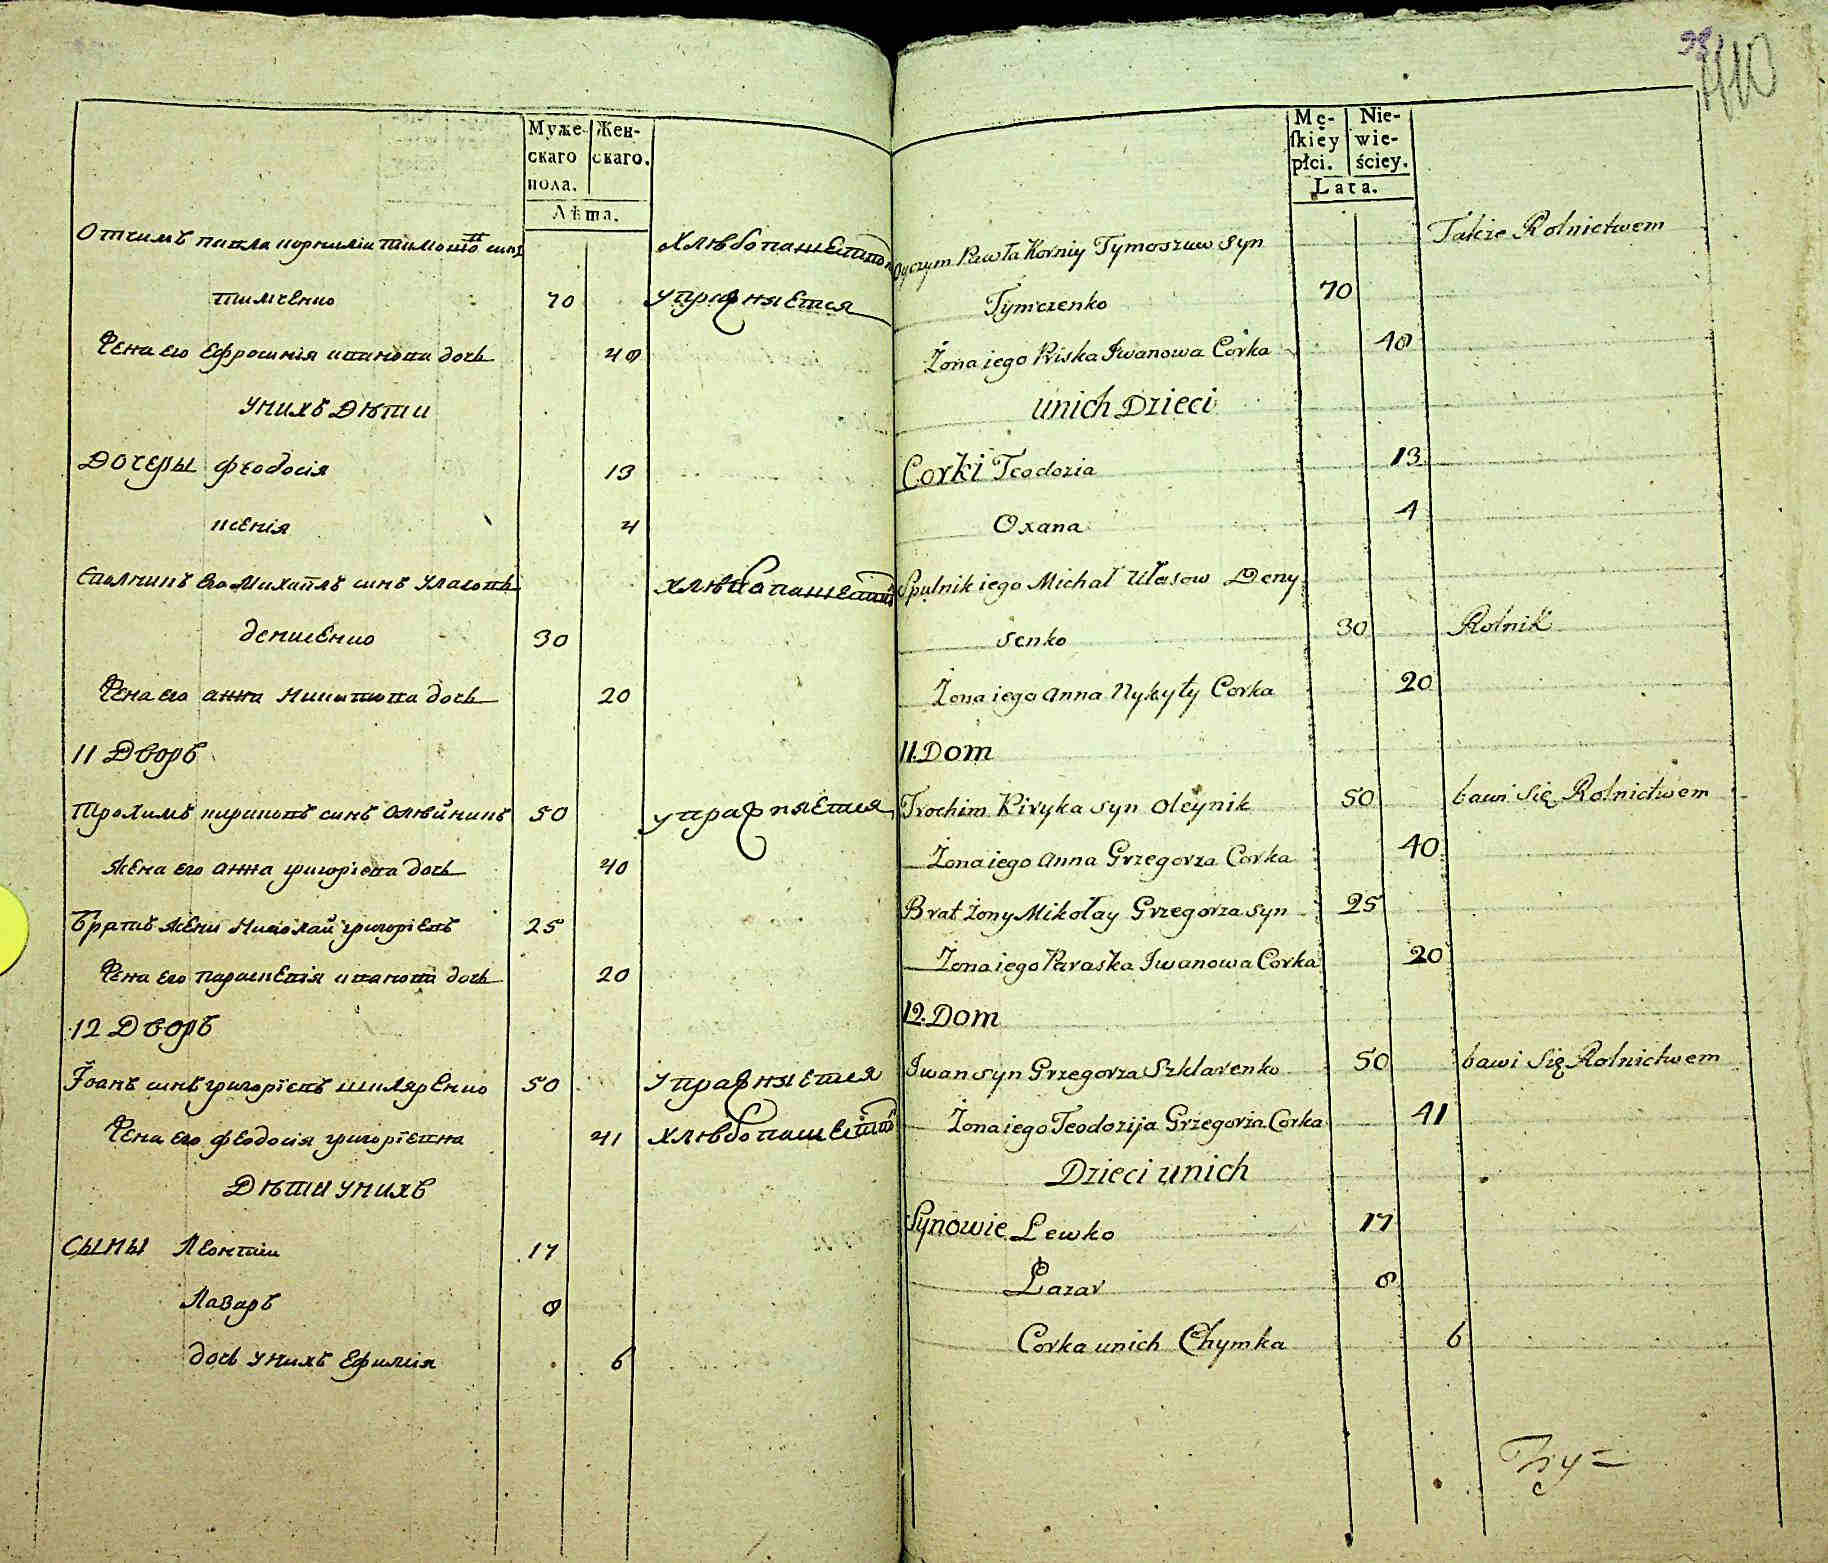 Муже-
скаго
пола.
Жен-
скаго.
Лѣта.
Отчимъ павла корнилій тимошовъ синъ
тимченко 70
Хлѣбопашество
упражняется
Жена его ефросинія иванова дочь 40
у нихъ Дѣти
Дочеры феодосія 13
ксенія 4
Сполникъ его Михаилъ синъ уласовъ
денисенко 30
хлѣбопашество
Жена его анна никитова дочь 20
11 Дворъ
Трохимъ кириковъ синъ олѣйникъ 50 упражняется
жена его анна григоріева дочь 40
братъ жени николай григоріевъ 25
Жена его параскевія иванова дочь 20
12 Дворъ
Іоанъ синъ григоріевъ шкляренко 50 упражняется
Жена его феодосія григоріевна 41 хлѣбопашество
Дѣти у нихъ
Сыны Леонтій 17
Лазаръ 8
дочь у нихъ Ефимія 6
98
110
Mę-
skiey
płci.
Nie-
wie-
ściey.
Lata.
Oyczym Pawła Korniy Tymoszuw Syn Także Rolnictwem
Tymczenko 70
Żona iego Priska Iwanowa Corka 40
unich Dzieci
Corki Teodozia 13
Oxana 4
Spulnik iego Michał Ułasow Deny
senko 30 Rolnik
Żona iego Anna Nykyty Corka 20
11. Dom
Trochim Kiryka syn Oleynik 50 bawi się Rolnictwem
Żona iego Anna Grzegorza Corka 40
Brat Żony Mikołay Grzegorza syn 25
Żona iego Paraska Iwanowa Corka 20
12. Dom
Iwan syn Grzegorza Szklarenko 50 bawi się Rolnictwem
Żona iego Teodozija Grzegorza Corka 41
Dzieci unich
Synowie Lewko 17
Łazar 8
Corka unich Chymka 6